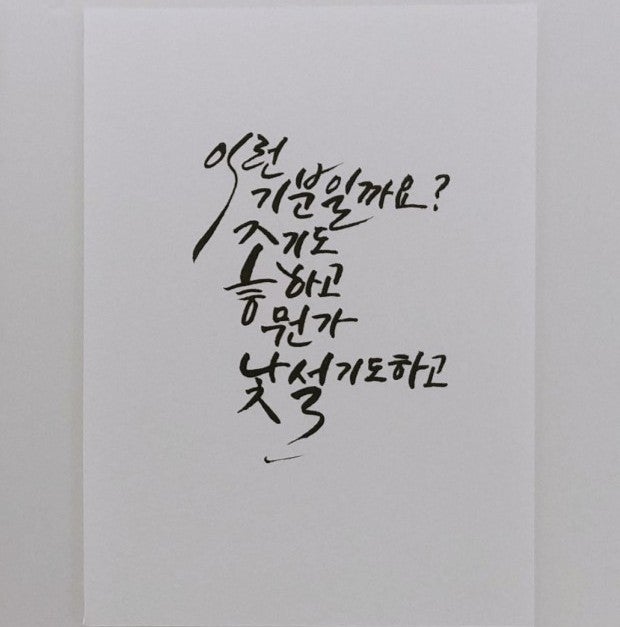 이런
기분일까요?
좋기도
하고
뭔가
낯설기도하고